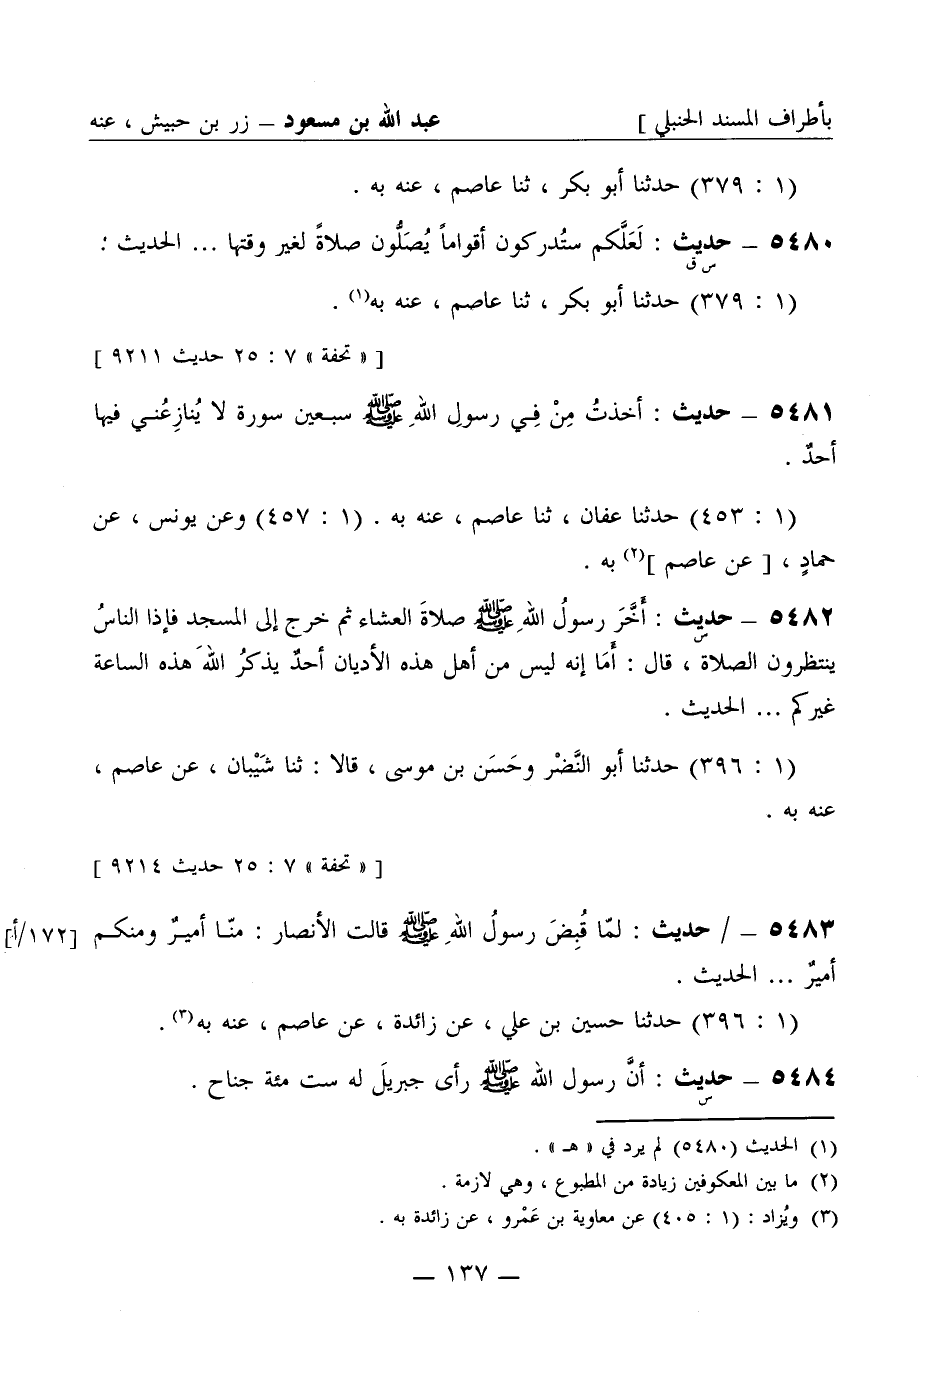 بأطراف المسند الحنبلي ] عبد الله بن مسعود – زر بن حبيش ، عنه
(١ : ٣٧٩) حدثنا أبو بكر ، ثنا عاصم ، عنه به .
٥٤٨٠ – حديث : لَعَلَّكم ستُدركون أقواماً يُصَلُّون صلاةً لغير وقتها ... الحديث :
س ق
(١ : ٣٧٩) حدثنا أبو بكر ، ثنا عاصم ، عنه به(١) .
[ « تحفة » ٧ : ٢٥ حديث ٩٢١١ ]
٥٤٨١ – حديث : أخذتُ مِنْ فِي رسولِ اللهِ ﷺ سبعين سورة لا يُنازِعُني فيها
أحدٌ .
(١ : ٤٥٣) حدثنا عفان ، ثنا عاصم ، عنه به . (١ : ٤٥٧) وعن يونس ، عن
حمادٍ ، [ عن عاصم ](٢) به .
٥٤٨٢ – حديث : أَخَّرَ رسولُ اللهِ ﷺ صلاةَ العشاء ثم خرج إلى المسجد فإذا الناسُ
س
ينتظرون الصلاة ، قال : أَمَا إنه ليس من أهل هذه الأديان أحدٌ يذكرُ اللهَ هذه الساعة
غيركم ... الحديث .
(١ : ٣٩٦) حدثنا أبو النَّضْر وحَسَن بن موسى ، قالا : ثنا شَيْبان ، عن عاصم ،
عنه به .
[ « تحفة » ٧ : ٢٥ حديث ٩٢١٤ ]
٥٤٨٣ – / حديث : لمّا قُبِضَ رسولُ اللهِ ﷺ قالت الأنصار : منّا أميرٌ ومنكم [١٧٢/أ]
أميرٌ ... الحديث .
(١ : ٣٩٦) حدثنا حسين بن علي ، عن زائدة ، عن عاصم ، عنه به(٣) .
٥٤٨٤ – حديث : أنَّ رسول الله ﷺ رأى جبريلَ له ست مئة جناح .
س
(١) الحديث (٥٤٨٠) لم يرد في « هـ » .
(٢) ما بين المعكوفين زيادة من المطبوع ، وهي لازمة .
(٣) ويُزاد : (١ : ٤٠٥) عن معاوية بن عَمْرو ، عن زائدة به .
– ١٣٧ –